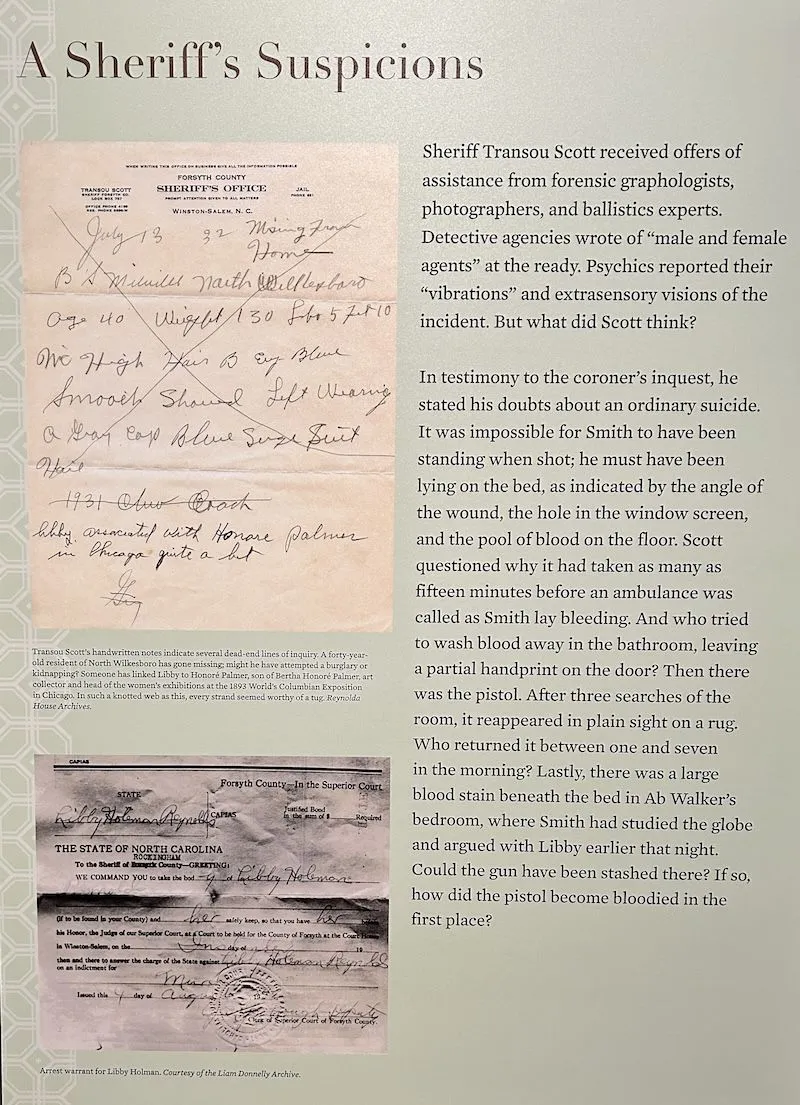 A Sheriff's Suspicions
WHEN WRITING THIS OFFICE ON BUSINESS GIVE ALL THE INFORMATION POSSIBLE
FORSYTH COUNTY
SHERIFF'S OFFICE
PROMPT ATTENTION GIVEN TO ALL MATTERS
WINSTON-SALEM, N. C.
TRANSOU SCOTT
SHERIFF FORSYTH CO.
LOCK BOX 757
JAIL
July 13 32 Mising From
Home
North Wilkesboro
age 40 Wieght 130 Lbs 5 Fet 10
High Hair B Ey Blue
Smooth Shaved Left Wearing
a Gray Cap Blue Surge Suit
1931 Coach
Libby associated with Honore Palmer
in Chicago quite a bit
Transou Scott's handwritten notes indicate several dead-end lines of inquiry. A forty-year-
old resident of North Wilkesboro has gone missing; might he have attempted a burglary or
kidnapping? Someone has linked Libby to Honoré Palmer, son of Bertha Honoré Palmer, art
collector and head of the women's exhibitions at the 1893 World's Columbian Exposition
in Chicago. In such a knotted web as this, every strand seemed worthy of a tug. Reynolda
House Archives.
CAPIAS
Forsyth County—In the Superior Court
STATE
Libby Holman Reynolds
CAPIAS
Justified Bond
in the sum of $ Required
THE STATE OF NORTH CAROLINA
ROCKINGHAM
To the Sheriff of County—GREETING:
WE COMMAND YOU to take the bod y of Libby Holman
(if to be found in your County) and her safely keep, so that you have her
his Honor, the Judge of our Superior Court, at a Court to be held for the County of Forsyth at the Court House
in Winston-Salem, on the day of 19
then and there to answer the charge of the State against Libby Holman Reynolds
on an indictment for
Issued this 4 day of August
Clerk of Superior Court of Forsyth County.
Arrest warrant for Libby Holman. Courtesy of the Liam Donnelly Archive.
Sheriff Transou Scott received offers of
assistance from forensic graphologists,
photographers, and ballistics experts.
Detective agencies wrote of “male and female
agents” at the ready. Psychics reported their
“vibrations” and extrasensory visions of the
incident. But what did Scott think?
In testimony to the coroner's inquest, he
stated his doubts about an ordinary suicide.
It was impossible for Smith to have been
standing when shot; he must have been
lying on the bed, as indicated by the angle of
the wound, the hole in the window screen,
and the pool of blood on the floor. Scott
questioned why it had taken as many as
fifteen minutes before an ambulance was
called as Smith lay bleeding. And who tried
to wash blood away in the bathroom, leaving
a partial handprint on the door? Then there
was the pistol. After three searches of the
room, it reappeared in plain sight on a rug.
Who returned it between one and seven
in the morning? Lastly, there was a large
blood stain beneath the bed in Ab Walker's
bedroom, where Smith had studied the globe
and argued with Libby earlier that night.
Could the gun have been stashed there? If so,
how did the pistol become bloodied in the
first place?